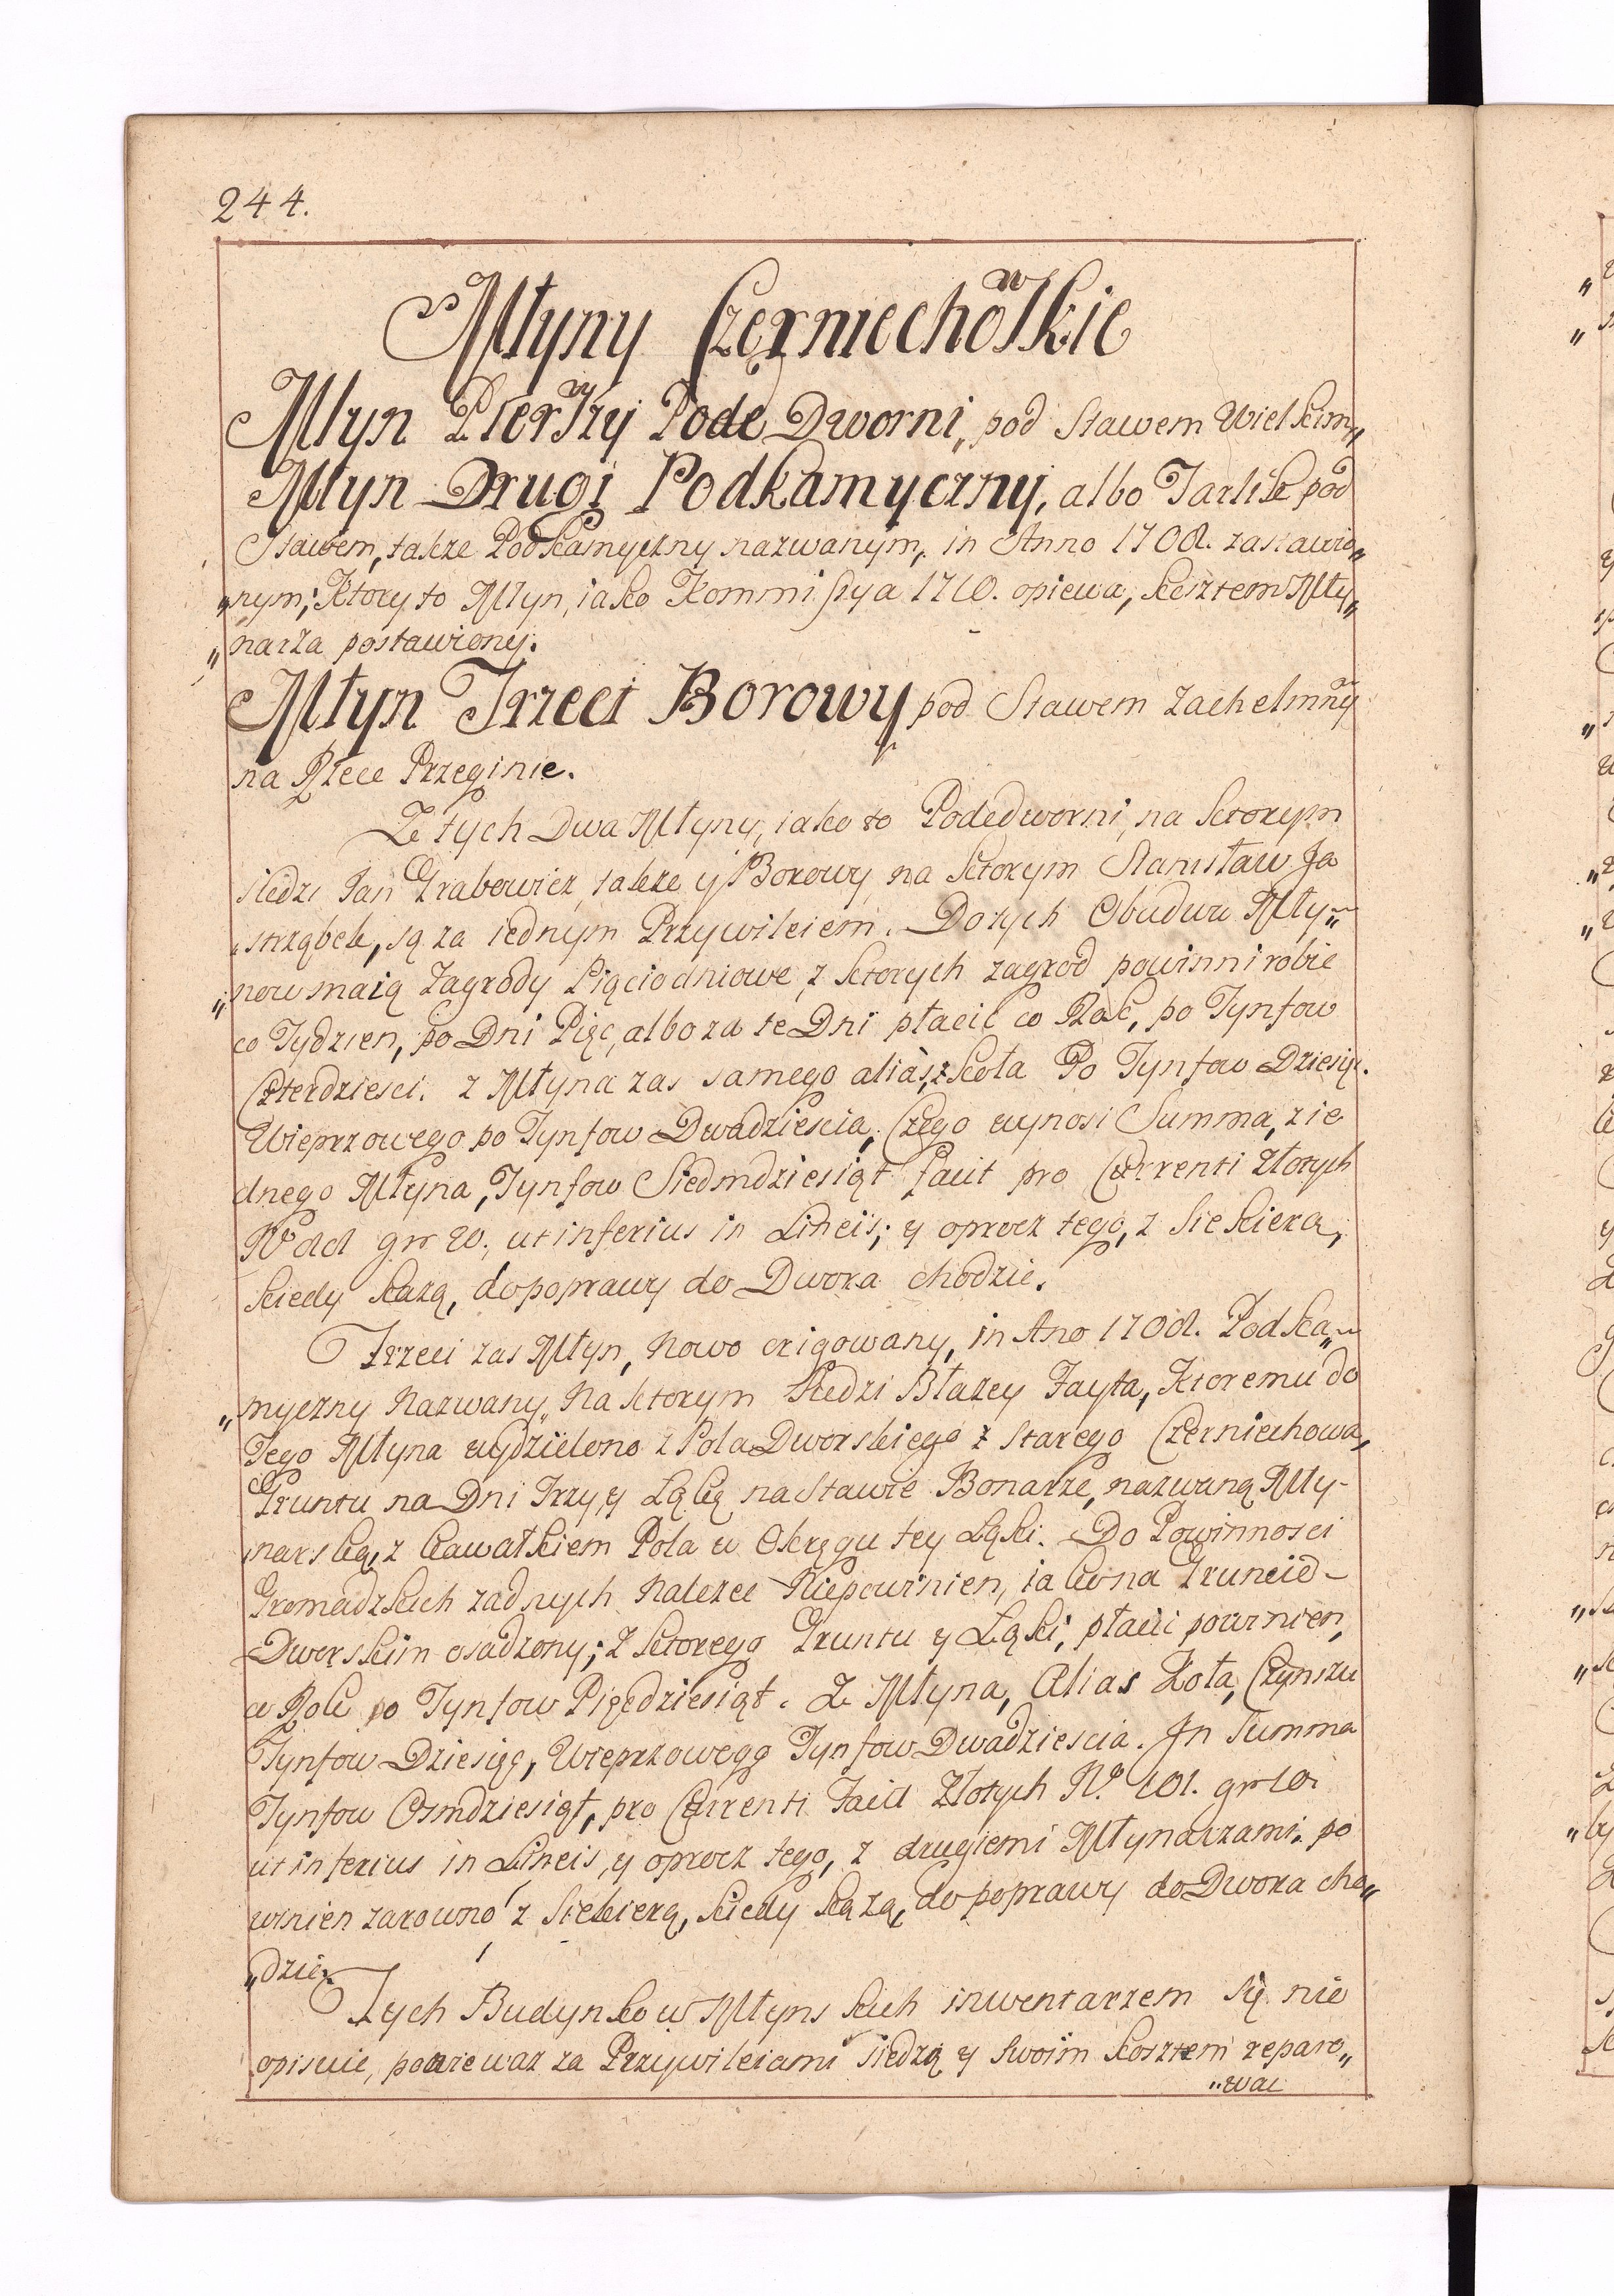 244.
Młyny Czerniechowskie
Młyn Pierwszy Pode Dworni, pod Stawem Wielkim,,
Młyn Drugi Podkamyczny, albo Tarlik pod
Stawem, także Podkamyczny nazwanym, in Anno 1708. zastawio,,
,,nym; Ktory to Młyn, iako Kommissya 1710. opiewa, kosztem Mły,,
,,narza postawiony.
Młyn Trzeci Borowy pod Stawem Zachelmny
na Rzece Przeginie.
Z tych Dwa Młyny, iako to Podedworni, na ktorym
siedzi Jan Grabowicz, także y Borowy, na ktorym Stanisław Ja
,,strząbek, są za iednym Przywileiem. Do tych Obudwu Mły,,
,,now maią Zagrody Pięciodniowe, z ktorych zagrod powinni robic
co Tydzien, po Dni Pięc, albo za te Dni płacic co Rok, po Tynfow
Czterdziesci. z Młyna zas samego aliàs z Koła Po Tynfow Dziesięc.
Wieprzowego po Tynfow Dwadziescia, Czego wynosi Summa, z ie
dnego Młyna, Tynfow Siedmdziesiąt facit pro Currenti Złotych
gr 20., ut inferius in Lineis; y oprocz tego, z Siekierą,
kiedy każą, do poprawy do Dwora chodzic.
Trzeci zas Młyn, nowo erigowany, in Ano 1708. Podka,,
,,myczny Nazwany, Na ktorym siedzi Błazey Fayta, Ktoremu do
Tego Młyna wydzielono z Pola Dworskiego z Starego Czerniechowa,
Gruntu na Dni Trzy, y Łąkę na Stawie Bonarze, nazwaną Mły-
narską, z kawałkiem Pola w Okręgu tey Łąki. Do Powinnosci
Gromadzkich zadnych Nalezec Niepowinien, iako na Gruncie
Dworskim osadzony; Z ktorego Gruntu y Łąki, płacic powinien,
co Rok po Tynfow Pięcdziesiąt. Z Młyna, Alias Koła, Czynszu
Tynfow Dziesięc, Wieprzowego Tynfow Dwadziescia. In Summa
Tynfow Osmdziesiąt, pro Currenti Facit Złotych No. 101. gr 10.
ut inferius in Lineis, y oprocz tego, z drugiemi Młynarzami, po
winien zarowno z Siekierą, kiedy każą, do poprawy do Dwora cho,,
,,dzic.
Tych Budynkow Młynskich inwentarzem się nie
opisuie, poniewaz za Przywileiami siedzą y swoim kosztem reparo,,
,,wac